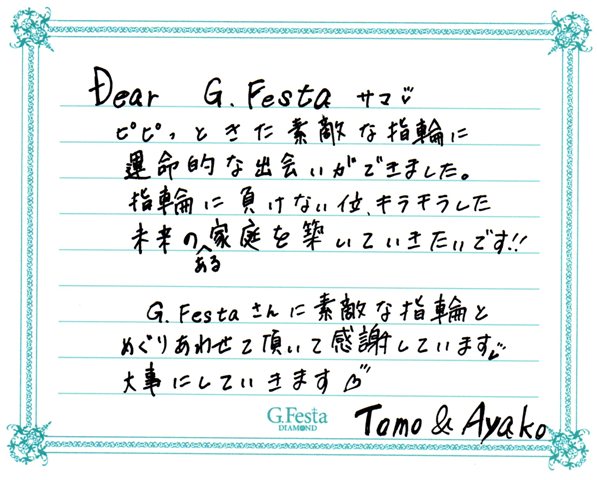 Dear G.Festa サマ♡
ピピっときた素敵な指輪に
運命的な出会いができました。
指輪に負けない位、キラキラした
未来のある家庭を築いていきたいです!!
G.Festaさんに素敵な指輪と
めぐりあわせて頂いて感謝しています♡
大事にしていきます♡
G.Festa
DIAMOND
Tomo & Ayako